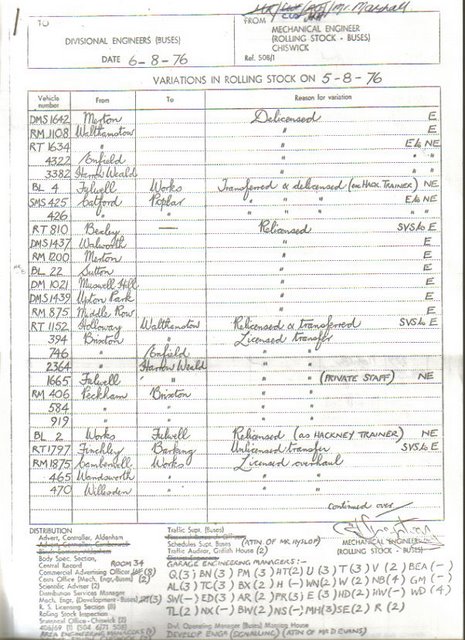 Mr. Marshall
TO
FROM
MECHANICAL ENGINEER
(ROLLING STOCK - BUSES)
CHISWICK
DIVISIONAL ENGINEERS (BUSES)
DATE 6-8-76
Ref. 508/1
VARIATIONS IN ROLLING STOCK ON 5-8-76
Vehicle number From To Reason for variation
DMS 1642 Merton Delicensed E
RM 1108 Walthamstow " E
RT 1634 " " E to NE
4322 Enfield " " "
3382 Harrow Weald " " "
BL 4 Fulwell Works Transferred & delicensed (ex HACK. TRAINER) NE
SMS 425 Catford Poplar " " E to NE
426 " " " " " "
RT 810 Bexley — Relicensed SVS to E
DMS 1437 Walworth " E
RM 1200 Merton " E
BL 22 Sutton " E
DM 1021 Muswell Hill " E
DMS 1439 Upton Park " E
RM 875 Middle Row " E
RT 1152 Holloway Walthamstow Relicensed & transferred SVS to E
394 Brixton Licensed transfer
746 " Enfield " "
2364 " Harrow Weald " "
1665 Fulwell " " " (PRIVATE STAFF) NE
RM 406 Peckham Brixton " "
584 " " " "
919 " " " "
BL 2 Works Fulwell Relicensed (as HACKNEY TRAINER) NE
RT 1797 Finchley Barking Unlicensed transfer SVS to E
RM 1875 Camberwell Works Licensed overhaul
465 Wandsworth " " "
470 Willesden " " "
continued over
DISTRIBUTION
Advert. Controller, Aldenham
Body Spec. Section,
Central Record ROOM 34
Commercial Advertising Officer
Costs Office (Mech. Engr.-Buses) (2)
Scientific Adviser (2)
Distribution Services Manager
Mech. Engr. (Development - Buses) (3)
R. S. Licensing Section (8)
Rolling Stock Inspection
Statistical Office - Chiswick (2)
Traffic Supt. (Buses)
Schedules Supt. Buses (ATTN OF MR HYSLOP)
Traffic Auditor, Gidish House (2)
MECHANICAL ENGINEER
(ROLLING STOCK - BUSES)
GARAGE ENGINEERING MANAGERS:-
Q(3) BN(3) PM(3) HT(2) U(3) T(3) V(2) BEA(-)
AL(3) TC(3) BX(2) H(-) WN(2) W(2) NB(4) GM(-)
SW(-) ED(3) AR(2) PR(3) E(3) HD(2) HW(-) WD(4)
TL(2) NX(-) BW(2) NS(-) MH(3) SE(2) R(2)
Divl. Operating Manager (Buses) Manning House
DEVELOP ENGR (SIGNALLING) (ATTN OF MR D EVANS)